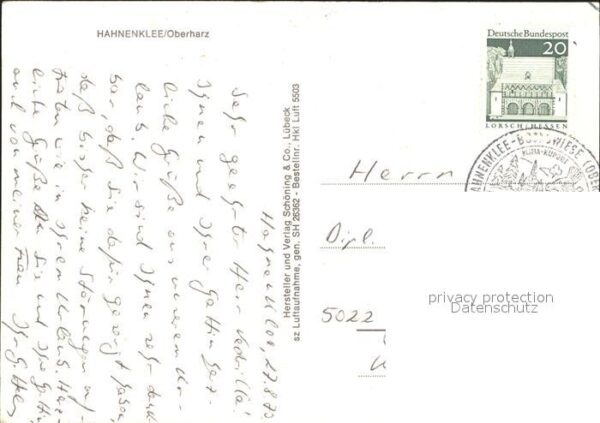 HAHNENKLEE/Oberharz
Hahnenklee, 17.8.73
Sehr geehrter Herr
Ihnen und Ihrer Gattin herz-
liche Grüße aus unserem Ur-
laub. Wir sind Ihnen sehr dank-
bar, daß Sie dafür gesorgt haben,
daß bisher keine Störungen auf-
traten wie in Ihrem Urlaub. Herz-
liche Grüße an Sie und Ihre Gattin
auch von meiner Frau Ihr
Hersteller und Verlag Schöning & Co., Lübeck
sz Luftaufnahme, gen. SH 26362 - Bestellnr. Hkl Luft 5503
Deutsche Bundespost
20
LORSCH/HESSEN
HAHNENKLEE-BOCKSWIESE (OBER
Herrn
Dipl.
5022
privacy protection
Datenschutz